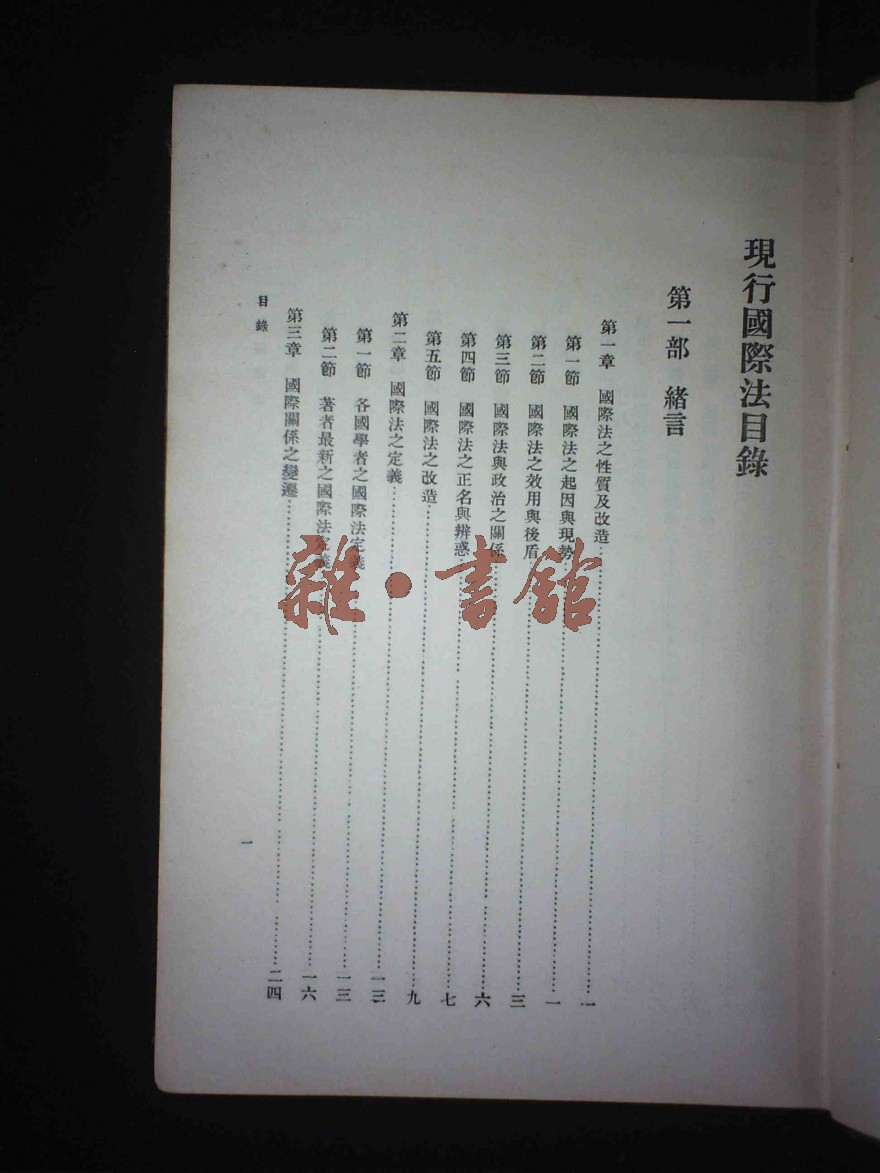 現行國際法目錄
第一部 緒言
第一章 國際法之性質及改造 一
第一節 國際法之起因與現勢 一
第二節 國際法之效用與後盾 三
第三節 國際法與政治之關係 六
第四節 國際法之正名與辨惑 七
第五節 國際法之改造 九
第二章 國際法之定義 一三
第一節 各國學者之國際法定義 一三
第二節 著者最新之國際法定義 一六
第三章 國際關係之變遷 二四
目錄
一
雜·書館